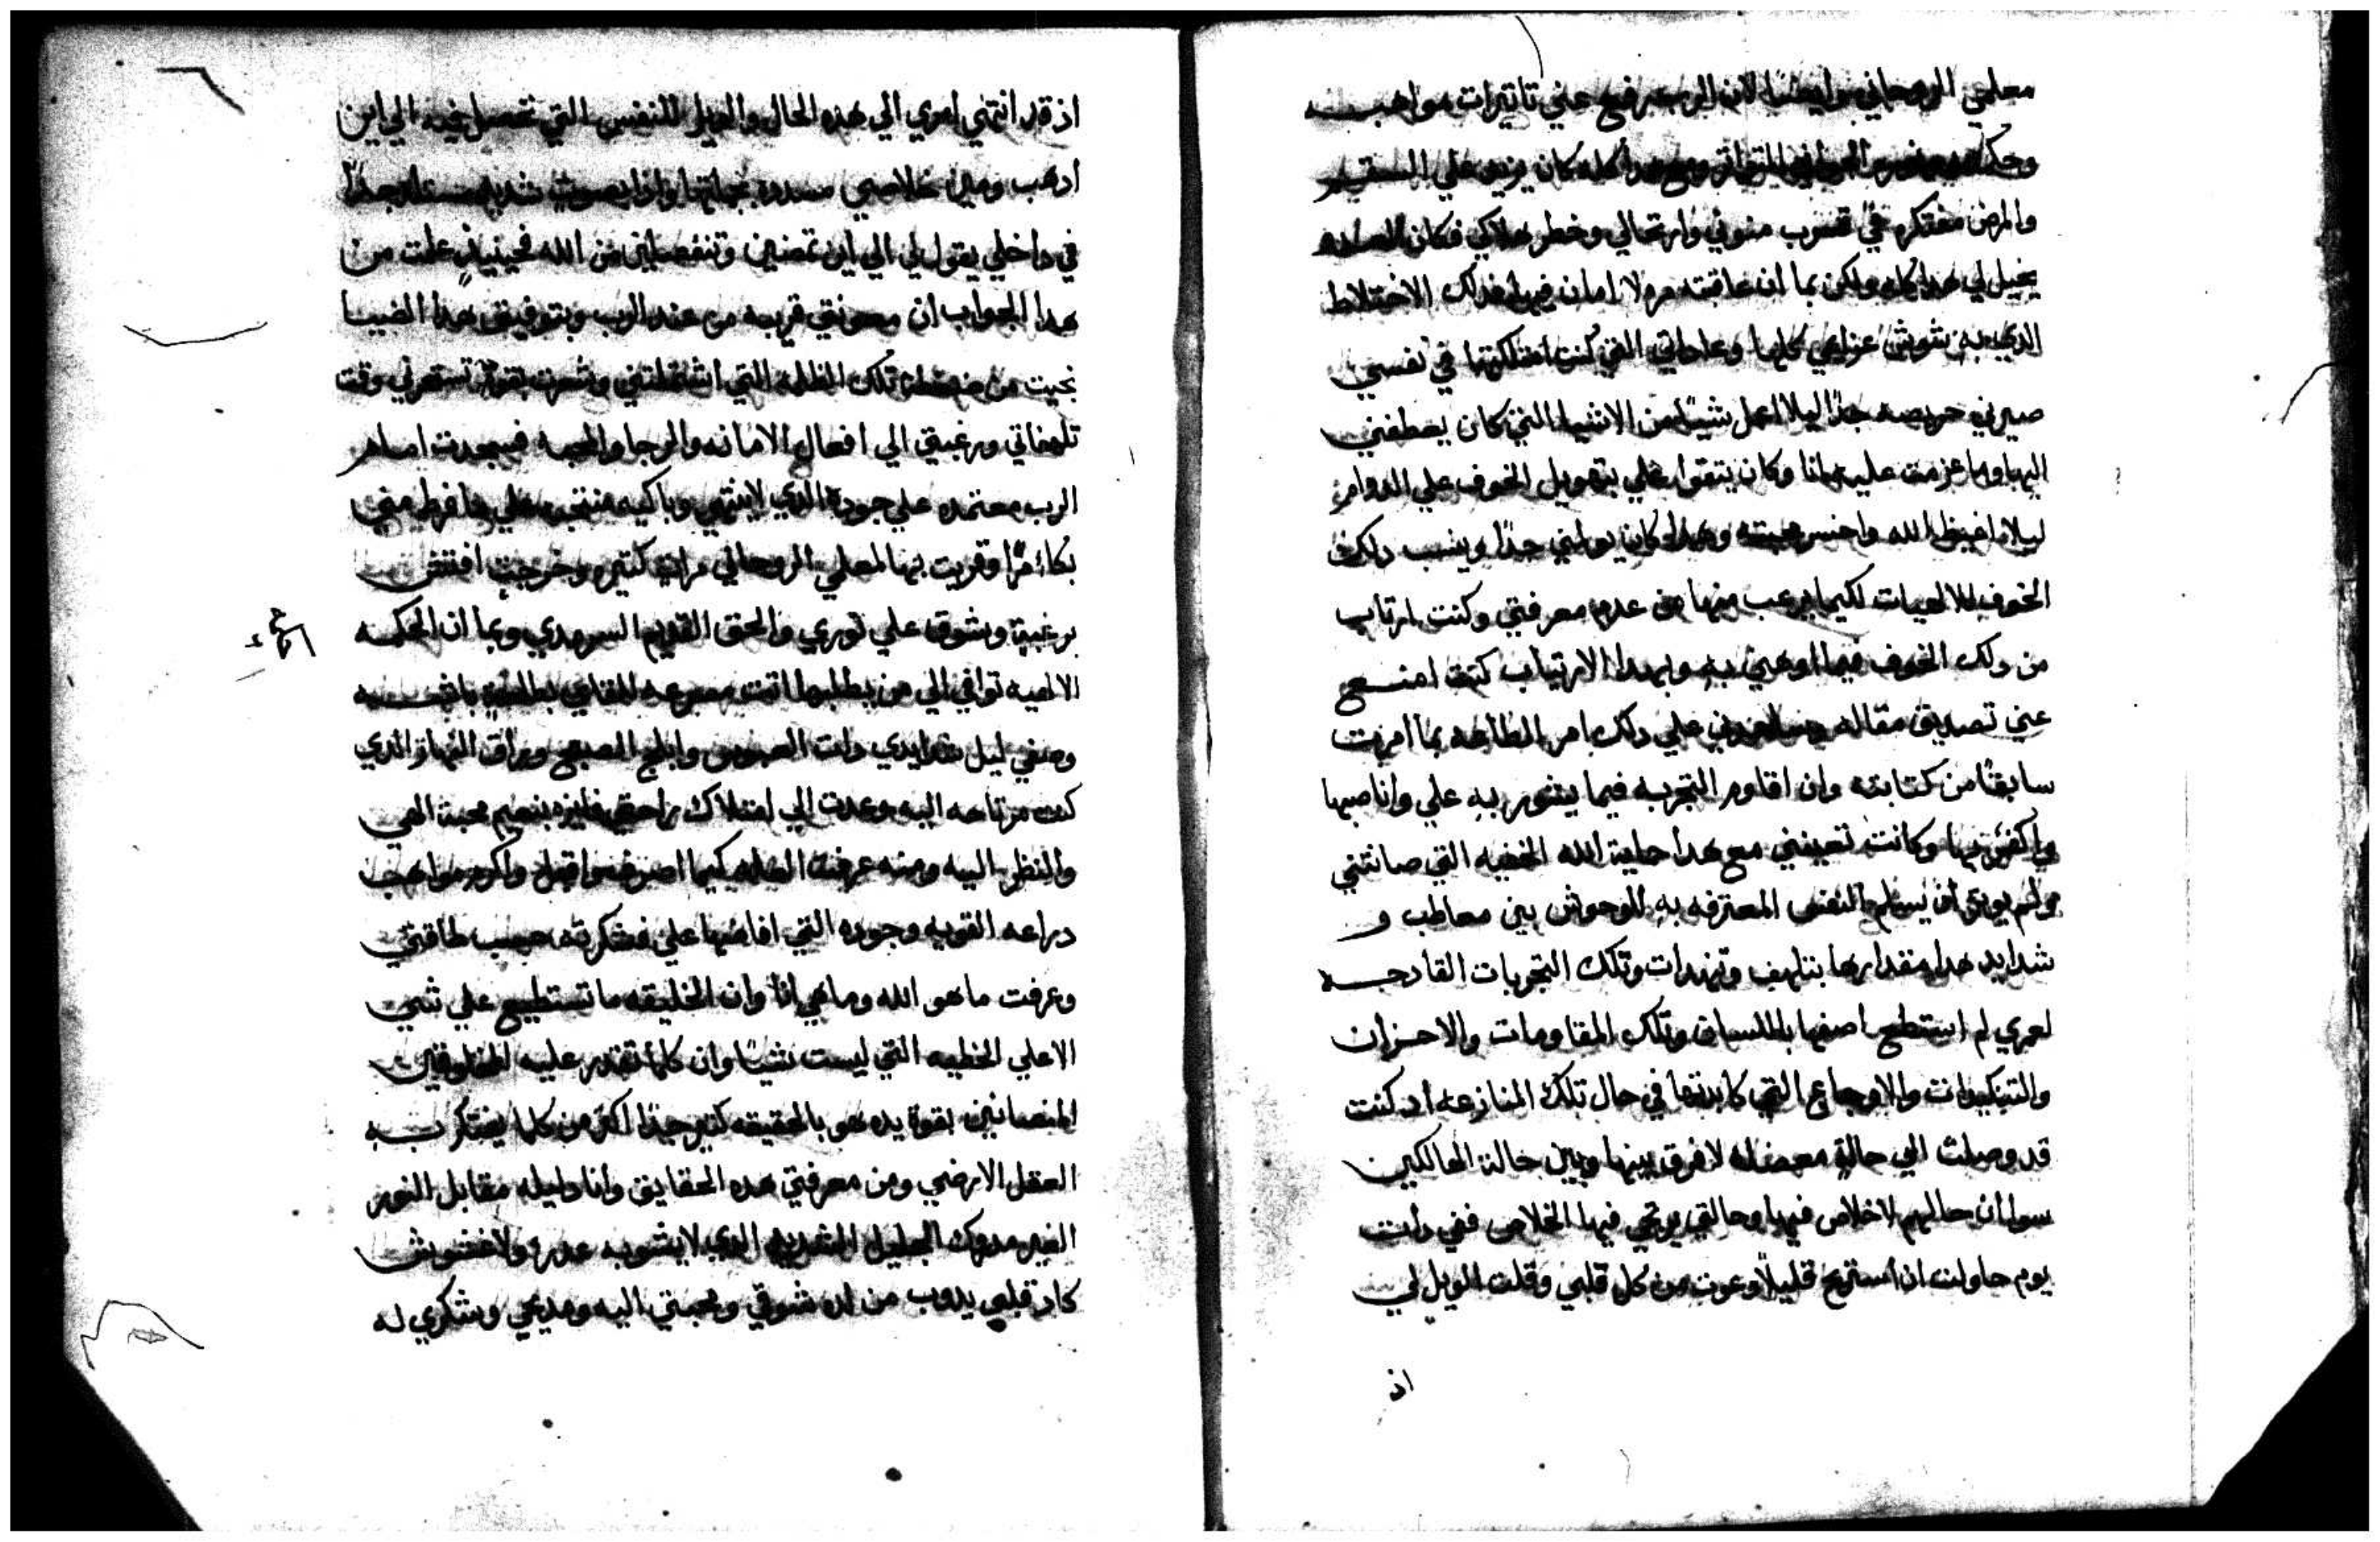 معلمي الروحاني وايضًا لان الرب رفع عني تاتيرات مواهبه
كان يزيد علي السقم
والمرض مفتكره في قرب منوني وارتحالي وخطر هلاكي فكان
يخيل لي هدا كله ولكن بما ان عاقبته مره لا امان فيها فدلك الاختلاط
الدي به شوش عزاي كلها وعاداتي التي كنت امتلكتها في نفسي
صيرني حريصه جدًا ليلا اعمل شيًا من الاشيا التي كان يعطفني
اليها وما عزمت عليها انا وكان يتقوا علي بتهويل الخوف علي الدوام
ليلا اغيظ الله واخسر محبته وهدا كان يولمني جدًا وينسب دلك
الخوف للالهيات لكيما يرعب منها من عدم معرفتي وكنت ارتاب
من دلك الخوف فيما اوهمني به وبهدا الارتياب كنت امنع
عني تصديق مقاله علي دلك امر الطاعه بما امرت
سابقًا من كتابته وان اقاوم التجربه فيما يشور به علي وانا صبها
وكانت تعينني مع هدا حماية الله الخفيه التي صانتني
ولم يدع ان يسلم النفس المعترفه به للوحوش بين معاطب و
شدايد هدا مقدارها بتلهف وتنهدات وتلك التجربات القادحه
لعمري لم استطع اصفها باللسان وتلك المقاومات والاحزان
والتنكيدات والاوجاع التي كابدتها في حال تلك المنازعه اد كنت
قد وصلت الي حالة معضله لا فرق بينها وبين حالة الهالكين
سوا ان حالهم لا خلاص فيها وحالتي يرتجي فيها الخلاص ففي دات
يوم حاولت ان استريح قليلًا وعوت من كل قلبي وقلت الويل لي
اذ
اذ قد انتهي امري الي هده الحال والويل للنفس التي تحصل فيه الي اين
ادهب ومين خلاصي مسدوده بجملتها واذا بصوت شديد جدًا
في داخلي يقول لي الي اين تمضين وتنفصلين من الله فحينيذٍ علمت من
هدا الجواب ان معونتي قريبه من عند الرب وبتوفيق هدا الضيا
نجيت من تلك الظلمه التي اشتملتني وشعرت بقوة تستفزني وقت
تلهفاتي ورغبتي الي افعال الامانه والرجا والمحبه فسجدت امام
الرب معتمده علي جودة الدي لا ينتهي وباكيه منتحبه علي ما فرط مني
بكاءً مرًا وقريت بها لمعلمي الروحاني مرات كتيره وخرجت افتش
برغبة وشوق علي نوري والحق القديم السرمدي وبما ان الحكمه
الالهيه توافي الي من يطلبها اتت مسرعه للقاي
ومضي ليل شدايدي دات العبوس وابلج الصبح وراق النهار الدي
كنت مرتاحه اليه وعدت الي امتلاك راحتي فايزه بنعيم محبة الهي
والنظر اليه ومنه عرفت العله كيما اصرف واقبل واكرم مواهب
دراعه القويه وجوده التي افاضها علي فشكرته حسب طاقتي
وعرفت ما هو الله وما هي انا وان الخليقه ما تستطيع علي شي
الا علي الخطيه التي ليست شيًا وان كلما تقدر عليه المخلوقين
المنصانين بقوة يده هو بالحقيقه كتير جدًا اكتر من كلما يفتكر به
العقل الارضي ومن معرفتي هده الحقايق وانا دليله مقابل النور
الغير مدروك الجليل الشديد الدي لا يشوبه عدر ولا غشوش
كاد قلبي يدوب من لدن شوقي ومحبتي اليه ومديحي وشكري له